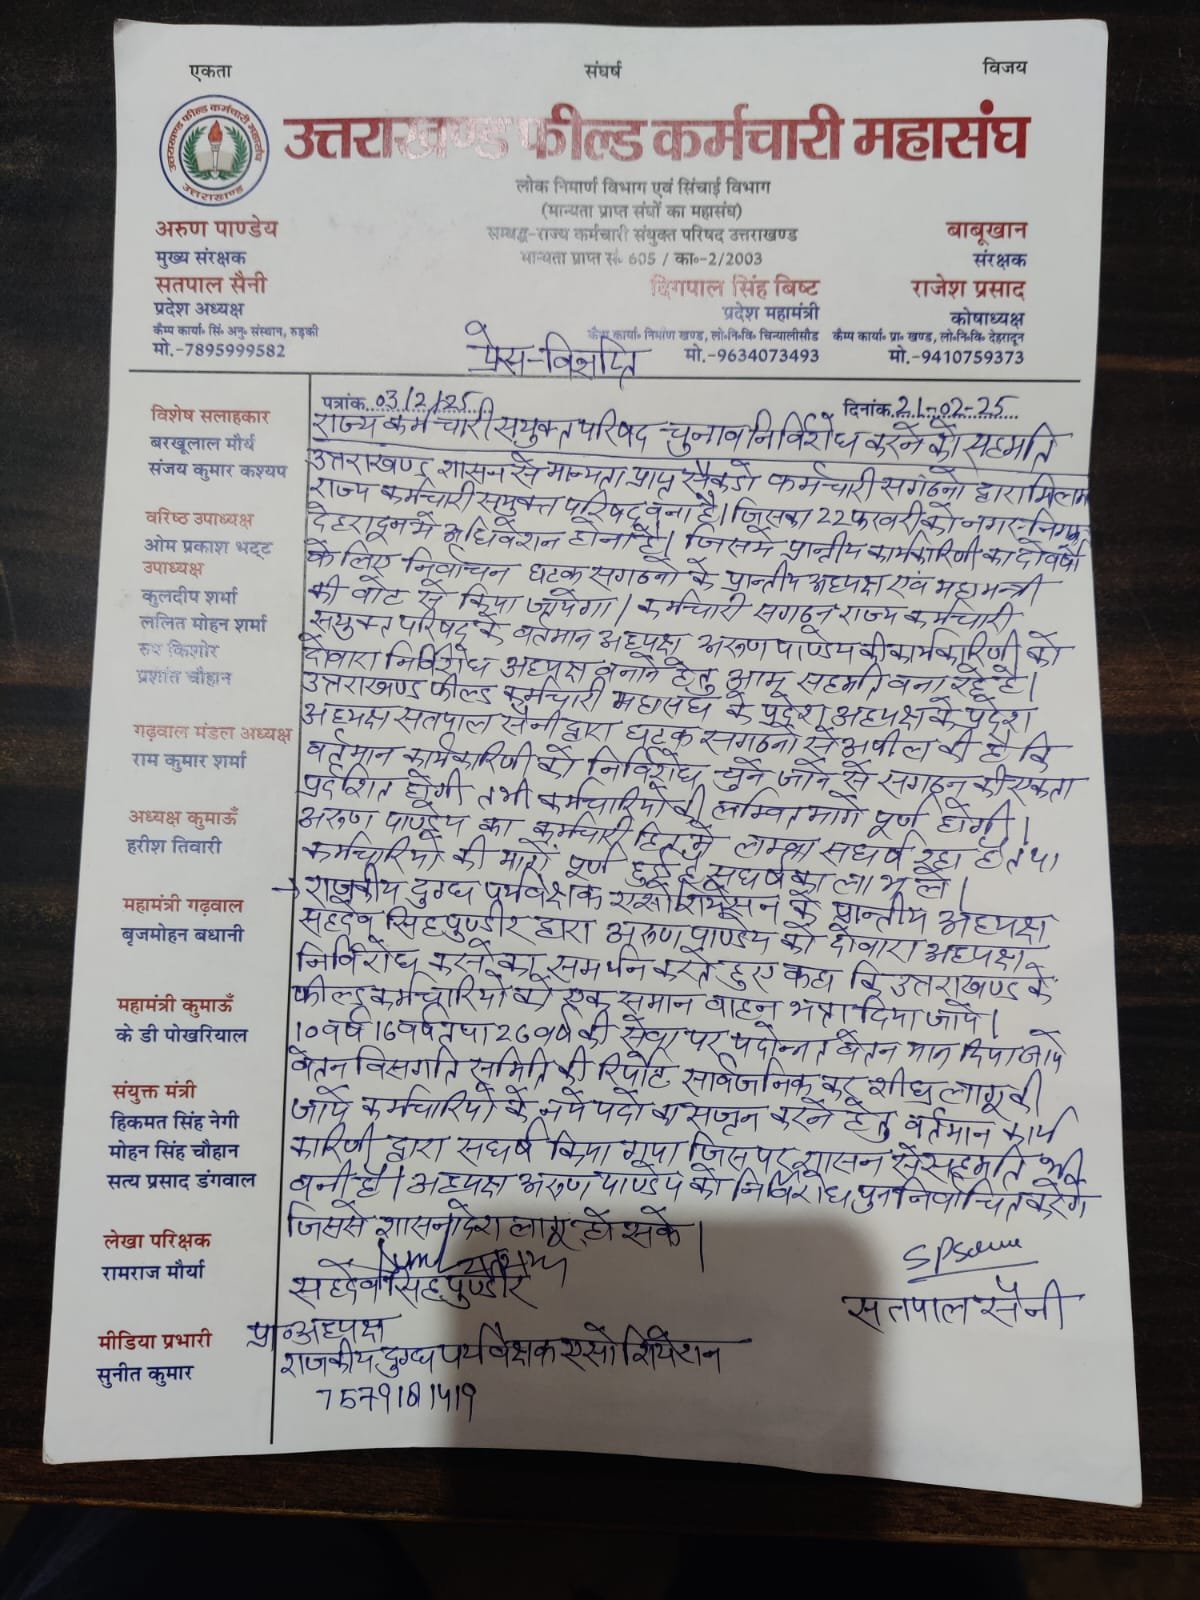 एकता संघर्ष विजय
उत्तराखण्ड फील्ड कर्मचारी महासंघ
लोक निमार्ण विभाग एवं सिंचाई विभाग
(मान्यता प्राप्त संघों का महासंघ)
सम्बद्ध-राज्य कर्मचारी संयुक्त परिषद उत्तराखण्ड
मान्यता प्राप्त सं. 605 / का०-2/2003
उत्तराखण्ड फील्ड कर्मचारी महासंघ
उत्तराखण्ड
अरुण पाण्डेय
मुख्य संरक्षक
सतपाल सैनी
प्रदेश अध्यक्ष
कैम्प कार्या० सिं० अनु० संस्थान, रुड़की
मो.-7895999582
दिगपाल सिंह बिष्ट
प्रदेश महामंत्री
कैम्प कार्या० निर्माण खण्ड, लो०नि०वि० चिन्यालीसौड
मो.-9634073493
बाबूखान
संरक्षक
राजेश प्रसाद
कोषाध्यक्ष
कैम्प कार्या० प्रा० खण्ड, लो०नि०वि० देहरादून
मो.-9410759373
प्रेस-विज्ञप्ति
विशेष सलाहकार
बरखूलाल मौर्य
संजय कुमार कश्यप
वरिष्ठ उपाध्यक्ष
ओम प्रकाश भट्ट
उपाध्यक्ष
कुलदीप शर्मा
ललित मोहन शर्मा
किशोर
प्रशांत चौहान
गढ़वाल मंडल अध्यक्ष
राम कुमार शर्मा
अध्यक्ष कुमाऊँ
हरीश तिवारी
महामंत्री गढ़वाल
बृजमोहन बधानी
महामंत्री कुमाऊँ
के डी पोखरियाल
संयुक्त मंत्री
हिकमत सिंह नेगी
मोहन सिंह चौहान
सत्य प्रसाद डंगवाल
लेखा परिक्षक
रामराज मौर्या
मीडिया प्रभारी
सुनीत कुमार
पत्रांक 03/2/25 दिनांक 21-02-25
राज्य कर्मचारी सयुक्त परिषद चुनाव निर्विरोध करने को सहमति
उत्तराखण्ड शासन से मान्यता प्राप्त सैकडो कर्मचारी सगठनो द्वारा
राज्य कर्मचारी सयुक्त परिषद बना है। जिसका 22 फरवरी को नगर निगम
देहरादून मे अधिवेशन होना है। जिसमे प्रान्तीय कार्यकारिणी का दो वर्षो
के लिए निर्वाचन घटक सगठनो के प्रान्तीय अध्यक्ष एवं महामन्त्री
की वोट से किया जायेगा। कर्मचारी सगठन राज्य कर्मचारी
सयुक्त परिषद के वर्तमान अध्यक्ष अरूण पाण्डेय की कार्यकारिणी को
दोवारा निर्विरोध अध्यक्ष बनाने हेतु आम सहमति बना रहे है।
उत्तराखण्ड फील्ड कर्मचारी महासंघ के प्रदेश अध्यक्ष के प्रदेश
अध्यक्ष सतपाल सैनी द्वारा घटक सगठनो से अपील की है कि
वर्तमान कार्यकारिणी को निर्विरोध चुने जाने से सगठन की एकता
प्रदर्शित होगी तभी कर्मचारियो की लम्बित मागे पूर्ण होगी।
अरूण पाण्डेय का कर्मचारी हित मे लम्बा सघर्ष रहा है तथा
कर्मचारियो की मागें पूर्ण हुई है सघर्ष का लाभ ले।
→ राजकीय दुग्ध पर्यवेक्षक एसोशियेसन के प्रान्तीय अध्यक्ष
सहदेव सिंह पुण्डीर द्वारा अरूण पाण्डेय को दोवारा अध्यक्ष
निर्विरोध करने का समर्थन करते हुए कहा कि उत्तराखण्ड के
फील्ड कर्मचारियो को एक समान वाहन भत्ता दिया जाये।
10 वर्ष 16 वर्ष तथा 26 वर्ष की सेवा पर पदोन्नत वेतन मान दिया जाये
वेतन विसगति समिति की रिपोर्ट सार्वजनिक कर शीघ्र लागू की
जाये कर्मचारियो के नये पदो का सजृन करने हेतु वर्तमान कार्य
कारिणी द्वारा सघर्ष किया गया जिस पर शासन से सहमति भी
बनी है। अध्यक्ष अरूण पाण्डेय को निर्विरोध पुन निर्वाचित करेगे
जिससे शासनादेश लागू हो सके।
सहदेव सिंह पुण्डीर
प्रा० अध्यक्ष
राजकीय दुग्ध पर्यवेक्षक एसोशियेशन
7579181419
सतपाल सैनी